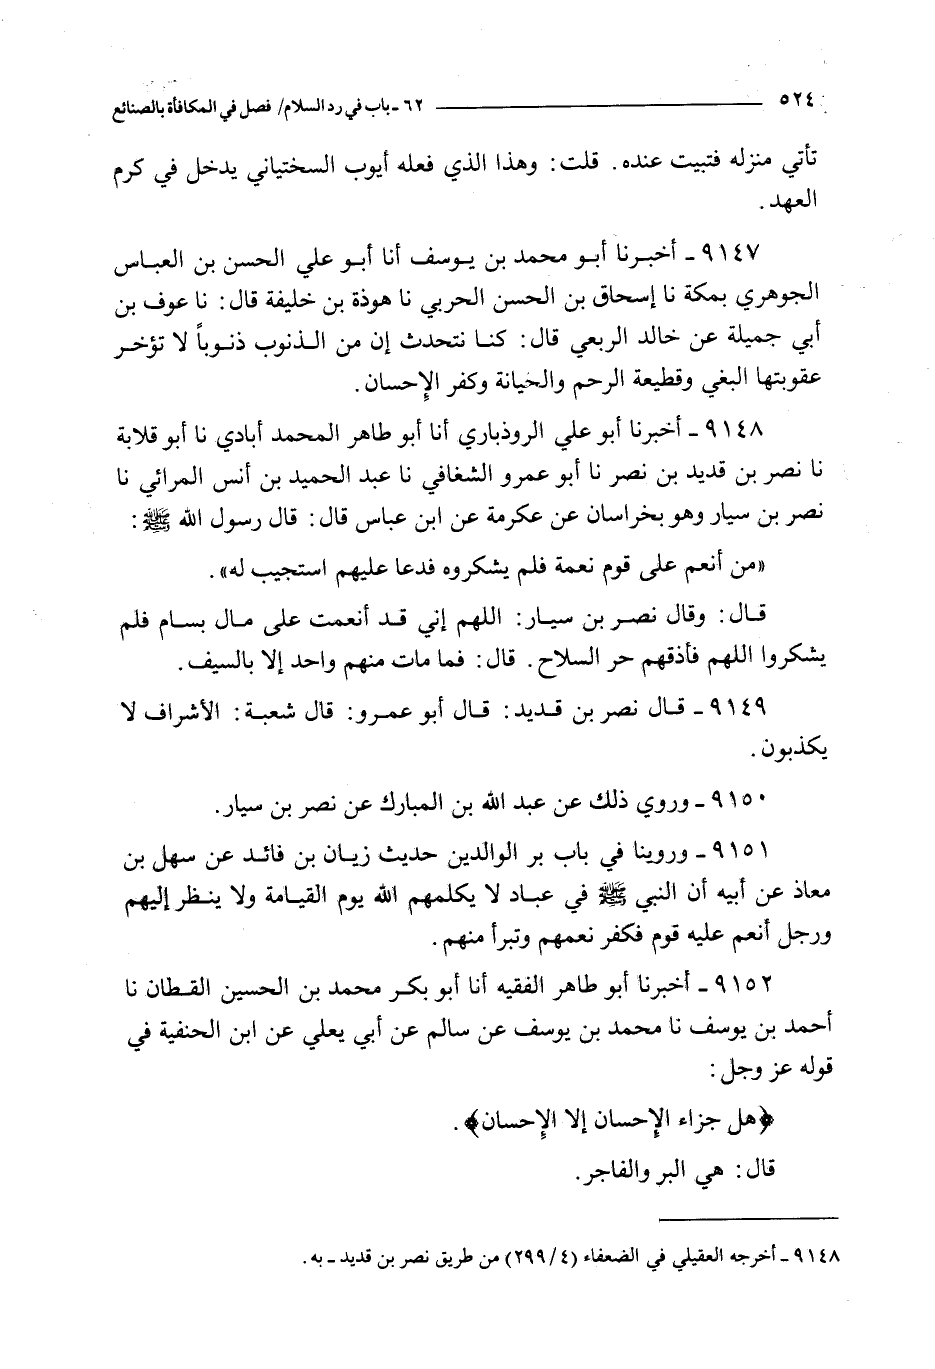 ٥٢٤ ـــــــ ٦٢ ـ باب في رد السلام/ فصل في المكافأة بالصنائع
تأتي منزله فتبيت عنده. قلت: وهذا الذي فعله أيوب السختياني يدخل في كرم
العهد.
٩١٤٧ ـ أخبرنا أبو محمد بن يوسف أنا أبو علي الحسن بن العباس
الجوهري بمكة نا إسحاق بن الحسن الحربي نا هوذة بن خليفة قال: نا عوف بن
أبي جميلة عن خالد الربعي قال: كنا نتحدث إن من الذنوب ذنوباً لا تؤخر
عقوبتها البغي وقطيعة الرحم والخيانة وكفر الإحسان.
٩١٤٨ ـ أخبرنا أبو علي الروذباري أنا أبو طاهر المحمد أبادي نا أبو قلابة
نا نصر بن قديد بن نصر نا أبو عمرو الشغافي نا عبد الحميد بن أنس المرائي نا
نصر بن سيار وهو بخراسان عن عكرمة عن ابن عباس قال: قال رسول الله ﷺ:
«من أنعم على قوم نعمة فلم يشكروه فدعا عليهم استجيب له».
قال: وقال نصر بن سيار: اللهم إني قد أنعمت على مال بسام فلم
يشكروا اللهم فأذقهم حر السلاح. قال: فما مات منهم واحد إلا بالسيف.
٩١٤٩ ـ قال نصر بن قديد: قال أبو عمرو: قال شعبة: الأشراف لا
يكذبون.
٩١٥٠ ـ وروي ذلك عن عبد الله بن المبارك عن نصر بن سيار.
٩١٥١ ـ وروينا في باب بر الوالدين حديث زيان بن فائد عن سهل بن
معاذ عن أبيه أن النبي ﷺ في عباد لا يكلمهم الله يوم القيامة ولا ينظر إليهم
ورجل أنعم عليه قوم فكفر نعمهم وتبرأ منهم.
٩١٥٢ ـ أخبرنا أبو طاهر الفقيه أنا أبو بكر محمد بن الحسين القطان نا
أحمد بن يوسف نا محمد بن يوسف عن سالم عن أبي يعلي عن ابن الحنفية في
قوله عز وجل:
﴿هل جزاء الإحسان إلا الإحسان﴾.
قال: هي البر والفاجر.
٩١٤٨ ـ أخرجه العقيلي في الضعفاء (٤/ ٢٩٩) من طريق نصر بن قديد ـ به.